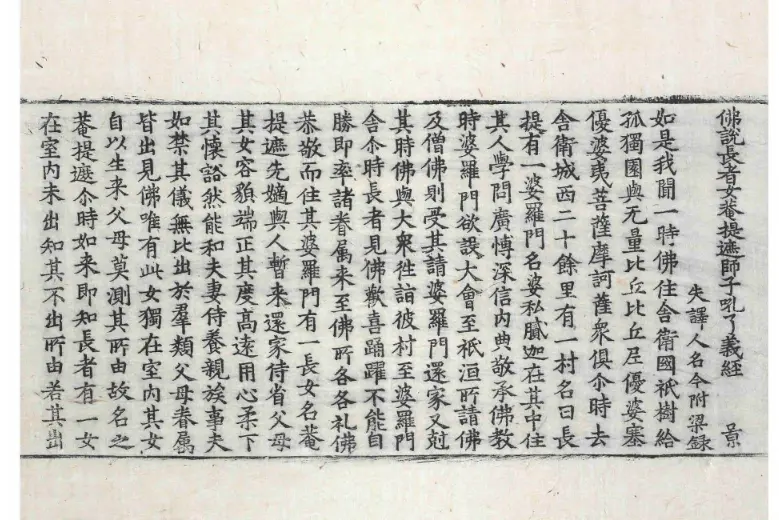 佛說長者女菴提遮師子吼了義經
失譯人名今附梁録 景
如是我聞一時佛住舍衛國衹樹給
孤獨園與无量比丘比丘尼優婆塞
優婆夷菩薩摩訶薩衆俱尒時去
舍衛城西二十餘里有一村名曰長
提有一婆羅門名婆私膩迦在其中住
其人學問廣博深信內典敬承佛教
時婆羅門欲設大會至衹洹所請佛
及僧佛則受其請婆羅門還家又尅
其時佛與大衆徃詣彼村至婆羅門
舍尒時長者見佛歡喜踊躍不能自
勝即率諸眷属来至佛所各各礼佛
恭敬而住其婆羅門有一長女名菴
提遮先嫡與人暫来還家侍省父母
其女容貌端正其度高遠用心柔下
其懷豁然能和夫妻侍養親族事夫
如禁其儀無比出於羣類父母眷属
皆出見佛唯有此女獨在室内其女
自以生来父母莫測其所由故名之
菴提遮尒時如来即知長者有一女
在室内未出知其不出所由若其出